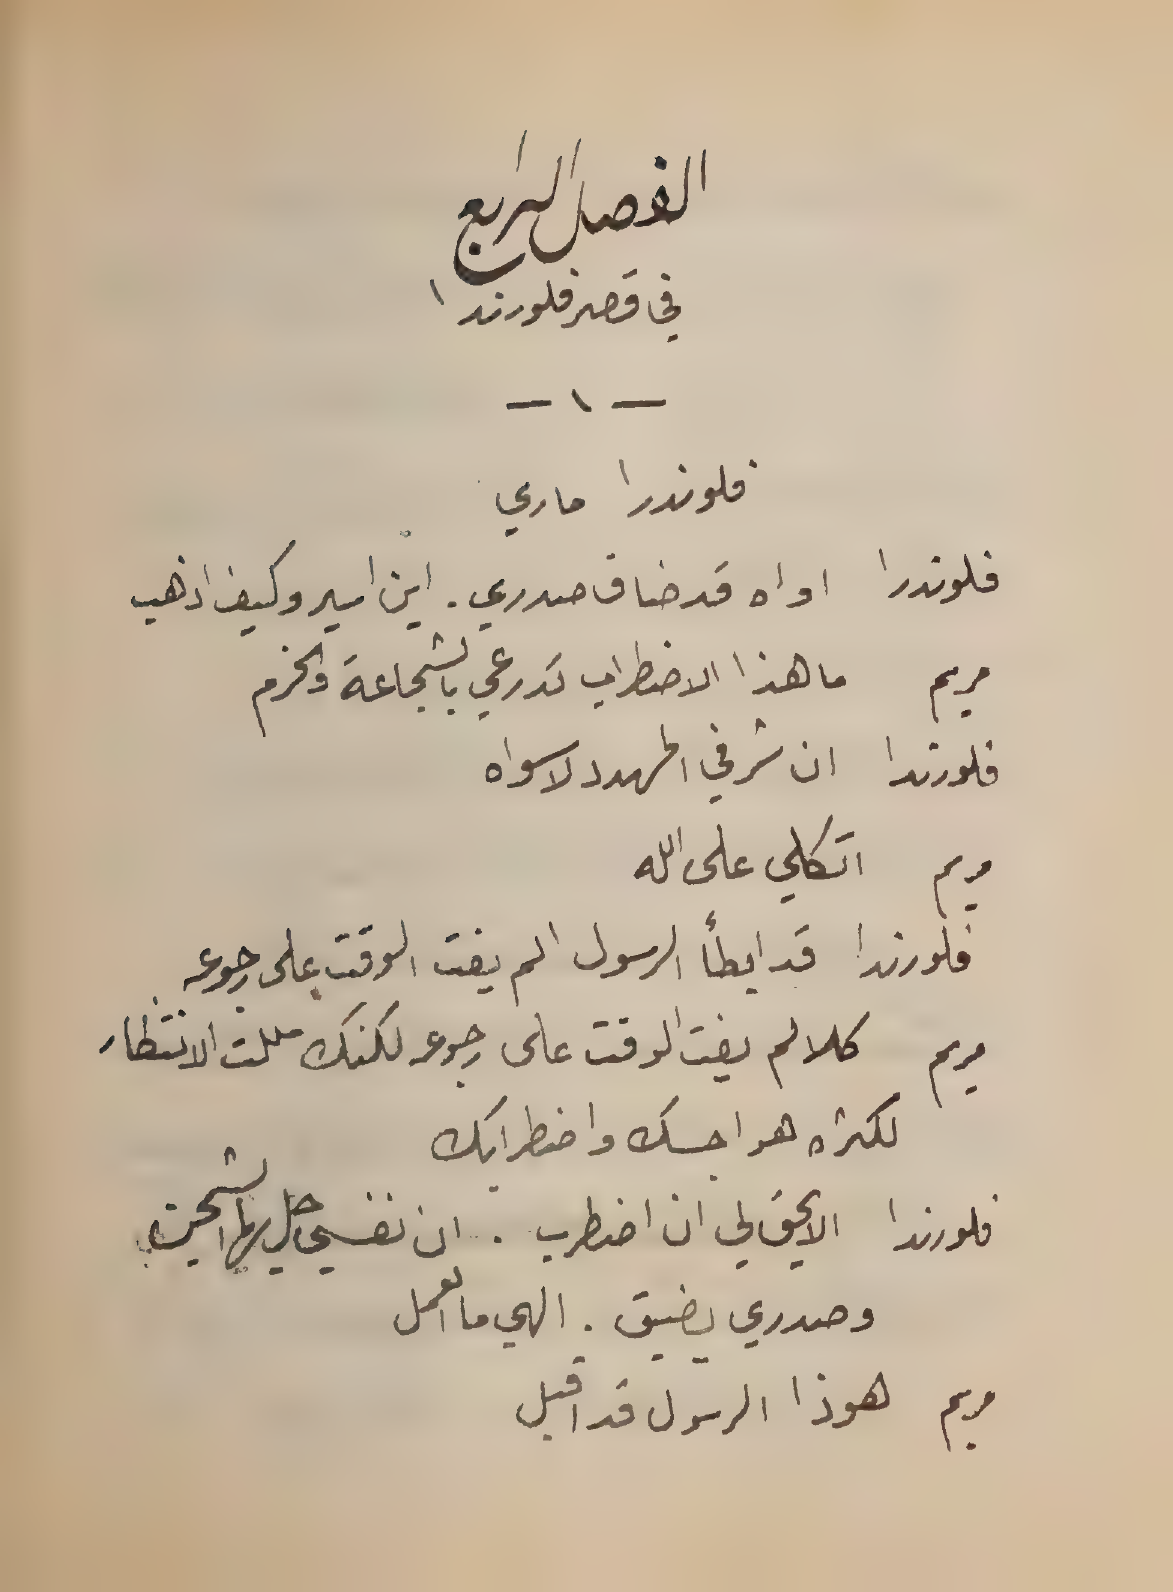 الفصل الرابع
في قصر فلورندا
— ١ —
فلوندرا ماري
فلوندرا اواه قد ضاق صدري . اين اسير وكيف اذهب
مريم ما هذا الاضطراب تدرعي بالشجاعة والحزم
فلورندا ان شرفي المهدد لاسواه
مريم اتكلي على الله
فلورندا قد ابطأ الرسول الم يفت الوقت على رجوعه
مريم كلا لم يفت الوقت على رجوعه لكنك مللت الانتظار
لكثره هواجسك واضطرابك
فلورندا الا يحق لي ان اضطرب . ان نفسي حل بها الشجن
وصدري يضيق . الهي ما العمل
مريم هوذا الرسول قد اقبل